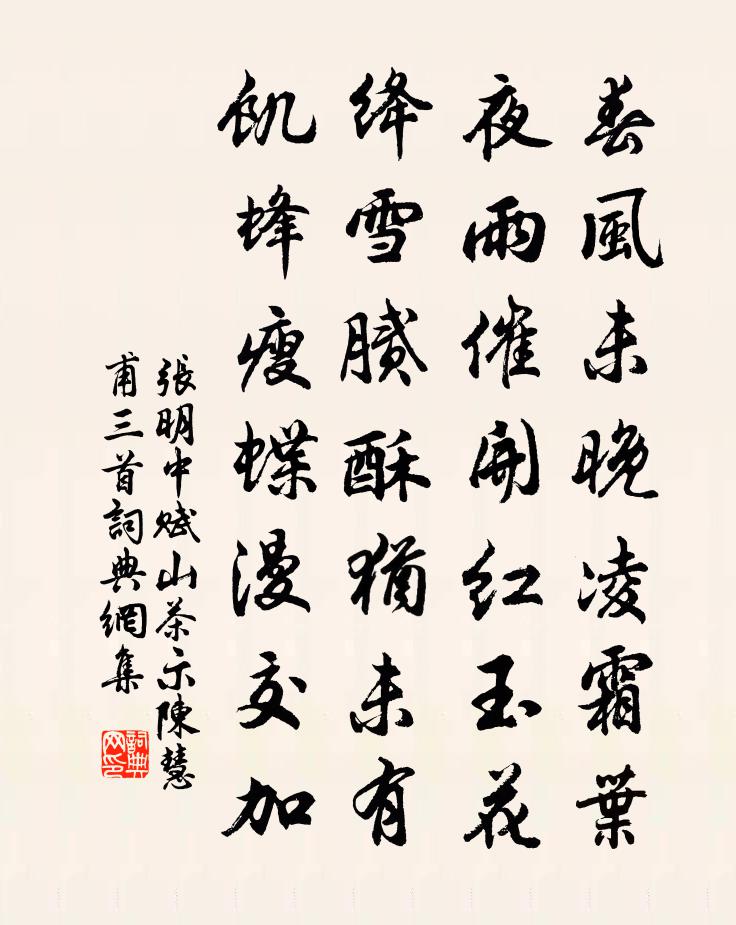 春風未晚凌霜葉
夜雨催開紅玉花
絳雪膩酥猶未有
飢蜂瘦蝶漫交加
張明中賦山茶示陳慧
甫三首詞典網集
詞典網印